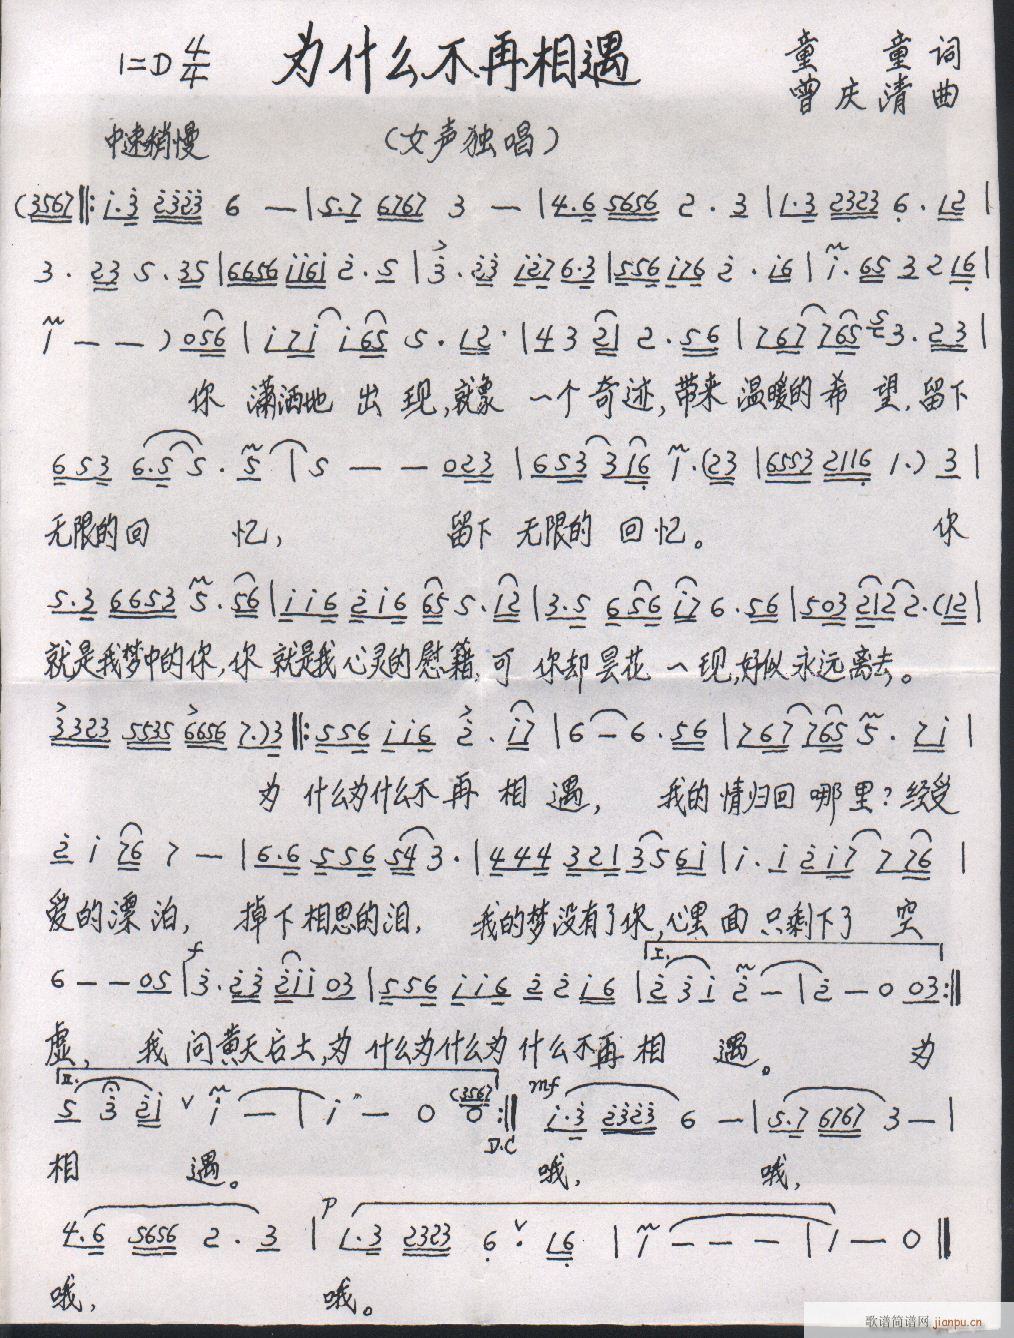 1=D 4/4 为什么不再相遇 童 童 词
曾庆清 曲
中速稍慢 (女声独唱)
(3567 ‖: i·3 2323 6 — | 5·7 6767 3 — | 4·6 5656 2·3 | 1·3 2323 6·12 |
3·23 5·35 | 6656 ii6i 2·5 | 3·23 i276·3 | 556 i76 2·i6 | i·65 3216 |
1 — — ) 056 | i7i i65 5·12 | 43 21 2·56 | 767 765 3·23 |
你 潇洒地 出 现,就象 一个奇迹,带来 温暖的希 望,留下
653 6·5 5·5 | 5 — — 023 | 653 316 1·(23 | 6553 2116 1·) 3 |
无限的回 忆, 留下 无限的 回忆。 你
5·3 6653 5·56 | ii6 2i6 65 5·12 | 3·5 656 i7 6·56 | 503 212 2·(12 |
就是我梦中的你,你 就是我心灵的慰藉,可 你却昙花 一现,好似永远离去。
3323 5535 6656 7·)3 ‖: 556 ii6 2·i7 | 6 — 6·56 | 767 765 5·7i |
为 什么为什么不再 相 遇, 我的情归回哪里?经受
2 i 76 7 — | 6·6 556 54 3· | 444 321 3561 | i·i 2i7 776 |
爱的漂泊, 掉下相思的泪, 我的梦没有了你,心里面只剩下了 空
f I.
6 — — 05 | 3·23 2ii 03 | 556 ii6 22i6 | 23i 2 — | 2 — 0 03 :‖
虚, 我 问黄天后土,为 什么为什么为 什么不再 相 遇。 为
II. (3567 mf
5 3 2i ∨ i — | i — 0 0 :‖ i·3 2323 6 — | 5·7 6767 3 — |
D.C
相 遇。 哦, 哦,
p
4·6 5656 2·3 | 1·3 2323 6 ∨· 16 | 1 — — — | 1 — 0 ‖
哦, 哦。
歌谱简谱网 jianpu.cn